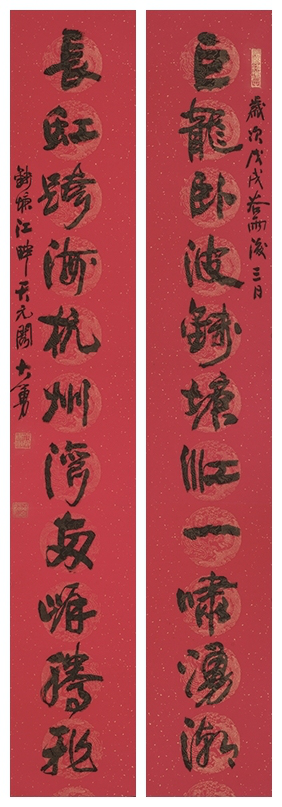 歲次戊戌谷雨後三日
巨龍卧波錢塘江一嘯湧潮
長虹跨海杭州灣兩岸騰飛
錢塘江畔天元閣大勇